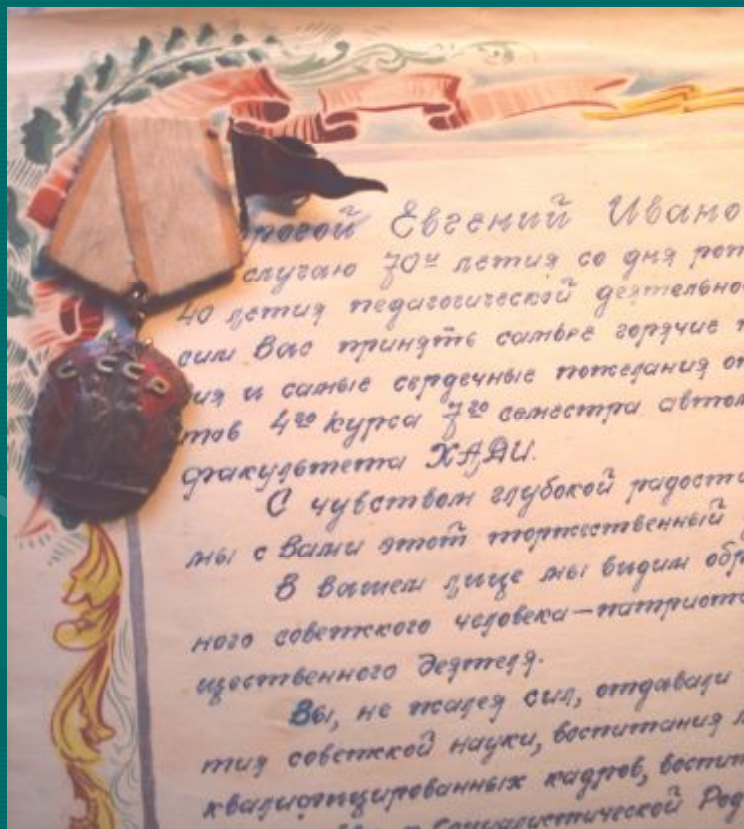 рогой Евгений Ивано
случаю 70и летия со дня рож
40 летия педагогической деятельнос
сим Вас принять самые горячие п
ия и самые сердечные пожелания от
тов 4го курса 7го семестра автом
факультета ХАДИ.
С чувством глубокой радости
мы с Вами этот торжественный
В вашем лице мы видим обр
ного советского человека—патриота
щественного деятеля.
Вы, не жалея сил, отдавали
тия советской науки, воспитания
квалифицированных кадров, воспит
Социалистической Род
СССР